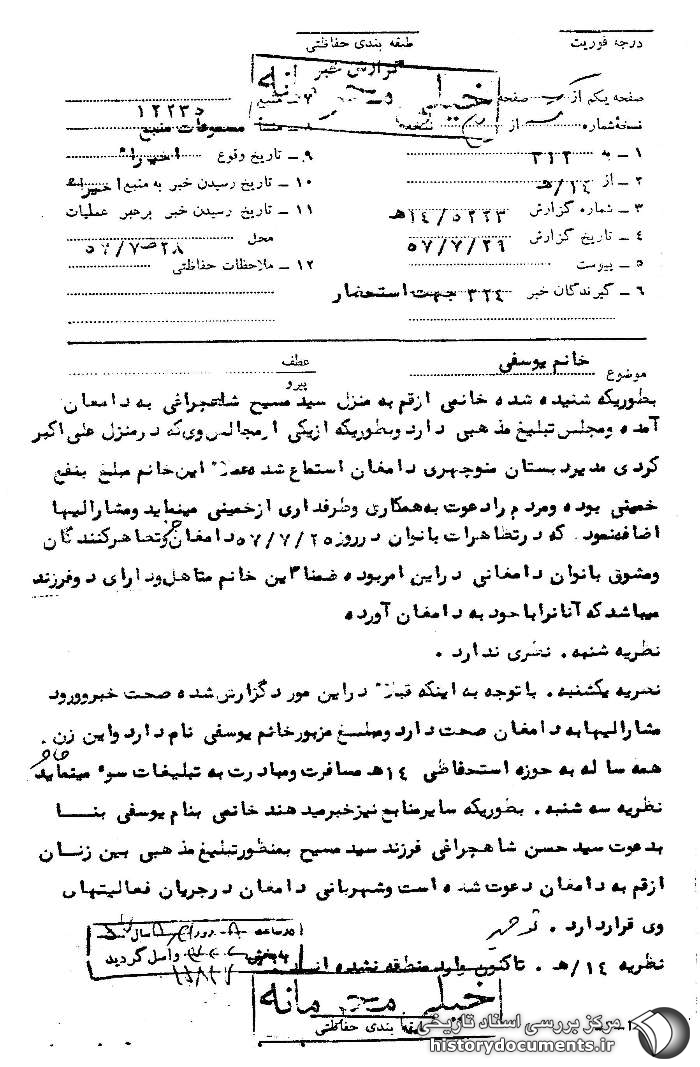 درجه فوریت
طبقه بندی حفاظتی
گزارش خبر
خیلی محرمانه
صفحه یکم از صفحه
نسخهٔ شماره از نسخه
۱ – به ۳۱۲
۲ – از ۱۴/ه
۳ – شماره گزارش ۱۴/۵۲۲۳ه
۴ – تاریخ گزارش ۵۷/۷/۲۹
۵ – پیوست
۶ – گیرندگان خبر ۳۲۴ جهت استحضار
۷ – منبع ۱۲۲۳۵
۸ – منشأ مسموعات منبع
۹ – تاریخ وقوع اخیراً
۱۰ – تاریخ رسیدن خبر به منبع اخیراً
۱۱ – تاریخ رسیدن خبر برهبر عملیات
محل ۵۷/۷/۲۸
۱۲ – ملاحظات حفاظتی
موضوع خانم یوسفی
عطف
پیرو
بطوریکه شنیده شده خانمی ازقم به منزل سید مسیح شاهچراغی به دامغان
آمده ومجلس تبلیغ مذهبی دارد وبطوریکه ازیکی ازمجالس وی که درمنزل علی اکبر
کردی مدیردبستان منوچهری دامغان استماع شده عملاً این خانم مبلغ بنفع
خمینی بوده ومردم رادعوت به همکاری وطرفداری ازخمینی مینماید ومشارالیها
اضافه نمود که درتظاهرات بانوان درروز ۵۷/۷/۲۵ دامغان جزو تظاهرکنندگان
ومشوق بانوان دامغانی دراین امربوده ضمناً این خانم متاهل ودارای دوفرزند
میباشد که آنانرا باخود به دامغان آورده
نظریه شنبه . نظری ندارد .
نظریه یکشنبه . باتوجه به اینکه قبلاً دراین مورد گزارش شده صحت خبروورود
مشارالیها به دامغان صحت دارد ومبلغ مزبورخانم یوسفی نام دارد واین زن
همه ساله به حوزه استحفاظی ۱۴ه مسافرت ومبادرت به تبلیغات سوء مینماید
نظریه سه شنبه . بطوریکه سایرمنابع نیزخبرمیدهند خانمی بنام یوسفی بنا
بدعوت سید حسن شاهچراغی فرزند سید مسیح بمنظورتبلیغ مذهبی بین زنان
ازقم به دامغان دعوت شده است وشهربانی دامغان درجریان فعالیتهای
وی قراردارد .
نظریه ۱۴/ه . تاکنون وارد منطقه نشده است
در ساعت روز سال
به بخش واصل گردید
خیلی محرمانه
طبقه بندی حفاظتی
مرکز بررسی اسناد تاریخی
historydocuments.ir